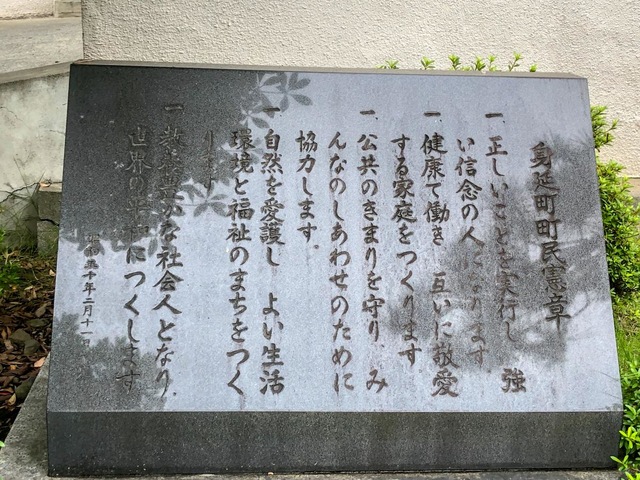 身延町町民憲章
一 正しいことを実行し 強
い信念の人になります
一 健康で働き 互いに敬愛
する家庭をつくります
一 公共のきまりを守り、み
んなのしあわせのために
協力します。
一 自然を愛護し よい生活
環境と福祉のまちをつく
ります
一 教養豊かな社会人となり、
世界の平和につくします
昭和五十年二月十一日